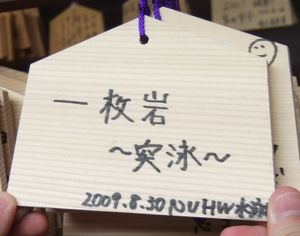 一枚岩
～突泳～
2009.8.30 NUHW水泳